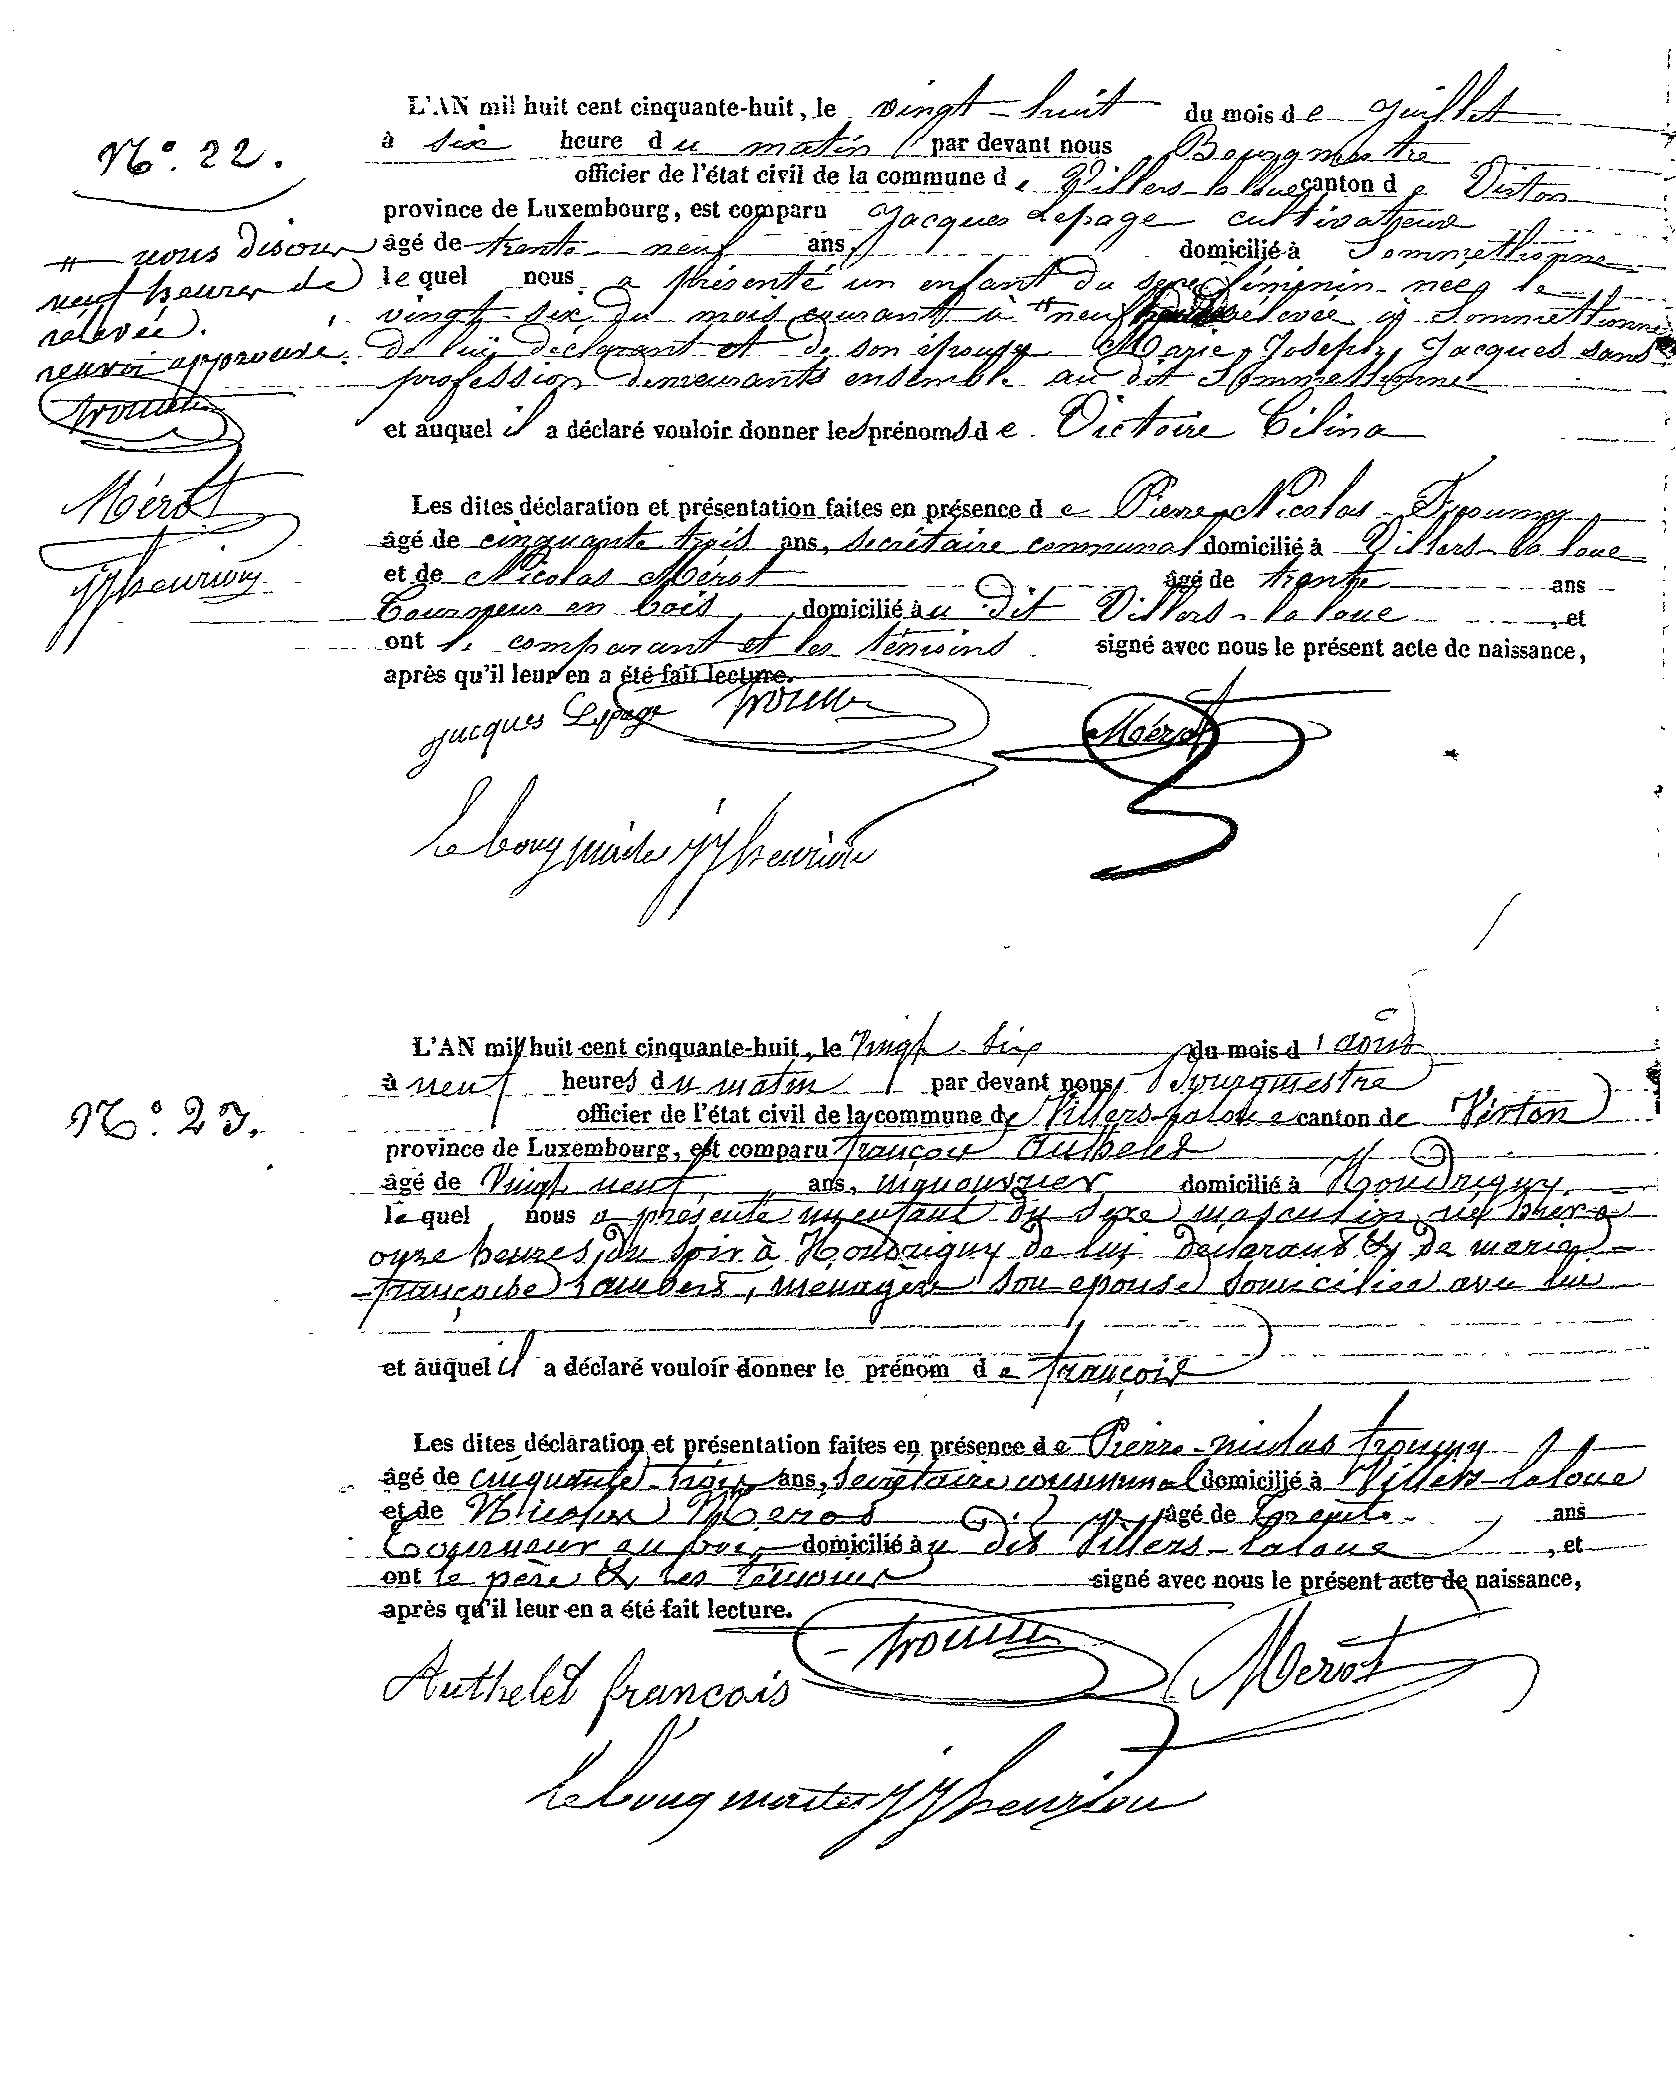 N.° 22.
" nous disons
neuf heures de
relevée.
renvoi approuvé.
Mérot
JJ henrion
L'AN mil huit cent cinquante-huit, le vingt-huit du mois de Juillet
à six heure du matin par devant nous Bourgmestre
officier de l'état civil de la commune de Villers-la loue canton de Virton
province de Luxembourg, est comparu Jacques Lepage cultivateur
âgé de trente neuf ans, domicilié à Sommethonne
lequel nous a présenté un enfant du sexe féminin née le
vingt-six du mois courant à " neuf relevée à Sommethonne
de lui déclarant et de son épouse Marie Joseph Jacques sans
profession demeurants ensemble au dit Sommethonne
et auquel il a déclaré vouloir donner les prénoms de Victoire Célina
Les dites déclaration et présentation faites en présence de Pierre Nicolas
âgé de cinquante trois ans, secrétaire communal domicilié à Villers-la loue
et de Nicolas Mérot âgé de trente ans
Tourneur en bois, domicilié au dit Villers-la loue, et
ont le comparant et les témoins signé avec nous le présent acte de naissance,
après qu'il leur en a été fait lecture.
Jacques Lepage
Mérot
Le bourgmestre JJ henrion
N.° 23.
L'AN mil huit cent cinquante-huit, le Vingt-six du mois d'août
à neuf heures du matin par devant nous, Bourgmestre
officier de l'état civil de la commune de Villers-laloue canton de Virton
province de Luxembourg, est comparu françois Authelet
âgé de Vingt neuf ans, manouvrier domicilié à Houdrigny,
lequel nous a présenté un enfant du sexe masculin né hier à
onze heures du soir à Houdrigny de lui déclarant & de marie
françoise Lambert, ménagère son épouse domiciliée avec lui
et auquel il a déclaré vouloir donner le prénom de françois
Les dites déclaration et présentation faites en présence de Pierre-nicolas
âgé de cinquante-trois ans, secrétaire communal domicilié à Villers-laloue
et de Nicolas Mérot âgé de trente ans
Tourneur en bois domicilié au dit Villers-laloue, et
ont le père & les témoins signé avec nous le présent acte de naissance,
après qu'il leur en a été fait lecture.
Authelet francois
Merot
Le bourgmestre JJ henrion